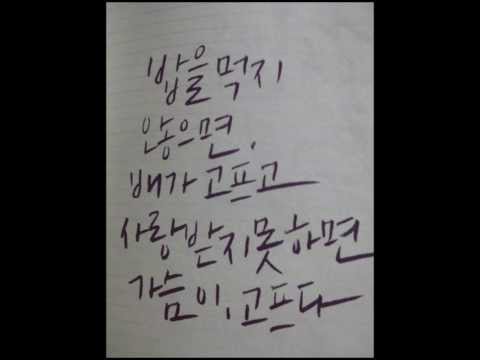 밥을 먹지
않으면,
배가 고프고
사랑받지못하면
가슴이, 고프다